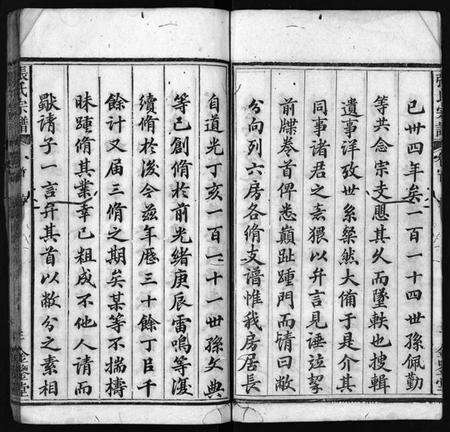 已卅四年矣一百一十四世孫佩勤
等共念宗支懸其久而墜軼也搜輯
遺事洋攷世系粲然大備于是介其
同事諸君之袁猥以弁言見諈竝挈
前牒拳首俾悉巔趾踵門而請曰敝
兮向列六房各脩支譜惟我房居長
自道光丁亥一百一十一世孫文典
等已創脩於前光緒庚辰雷鳴等復
續脩於後今茲年曆三十餘丁口千
餘計又届三脩之期矣某等不揣檮
昧踵脩其業幸已粗成不他人請而
歟請子一言弁其首以敝兮之素相
張氏宗譜
金鑒堂